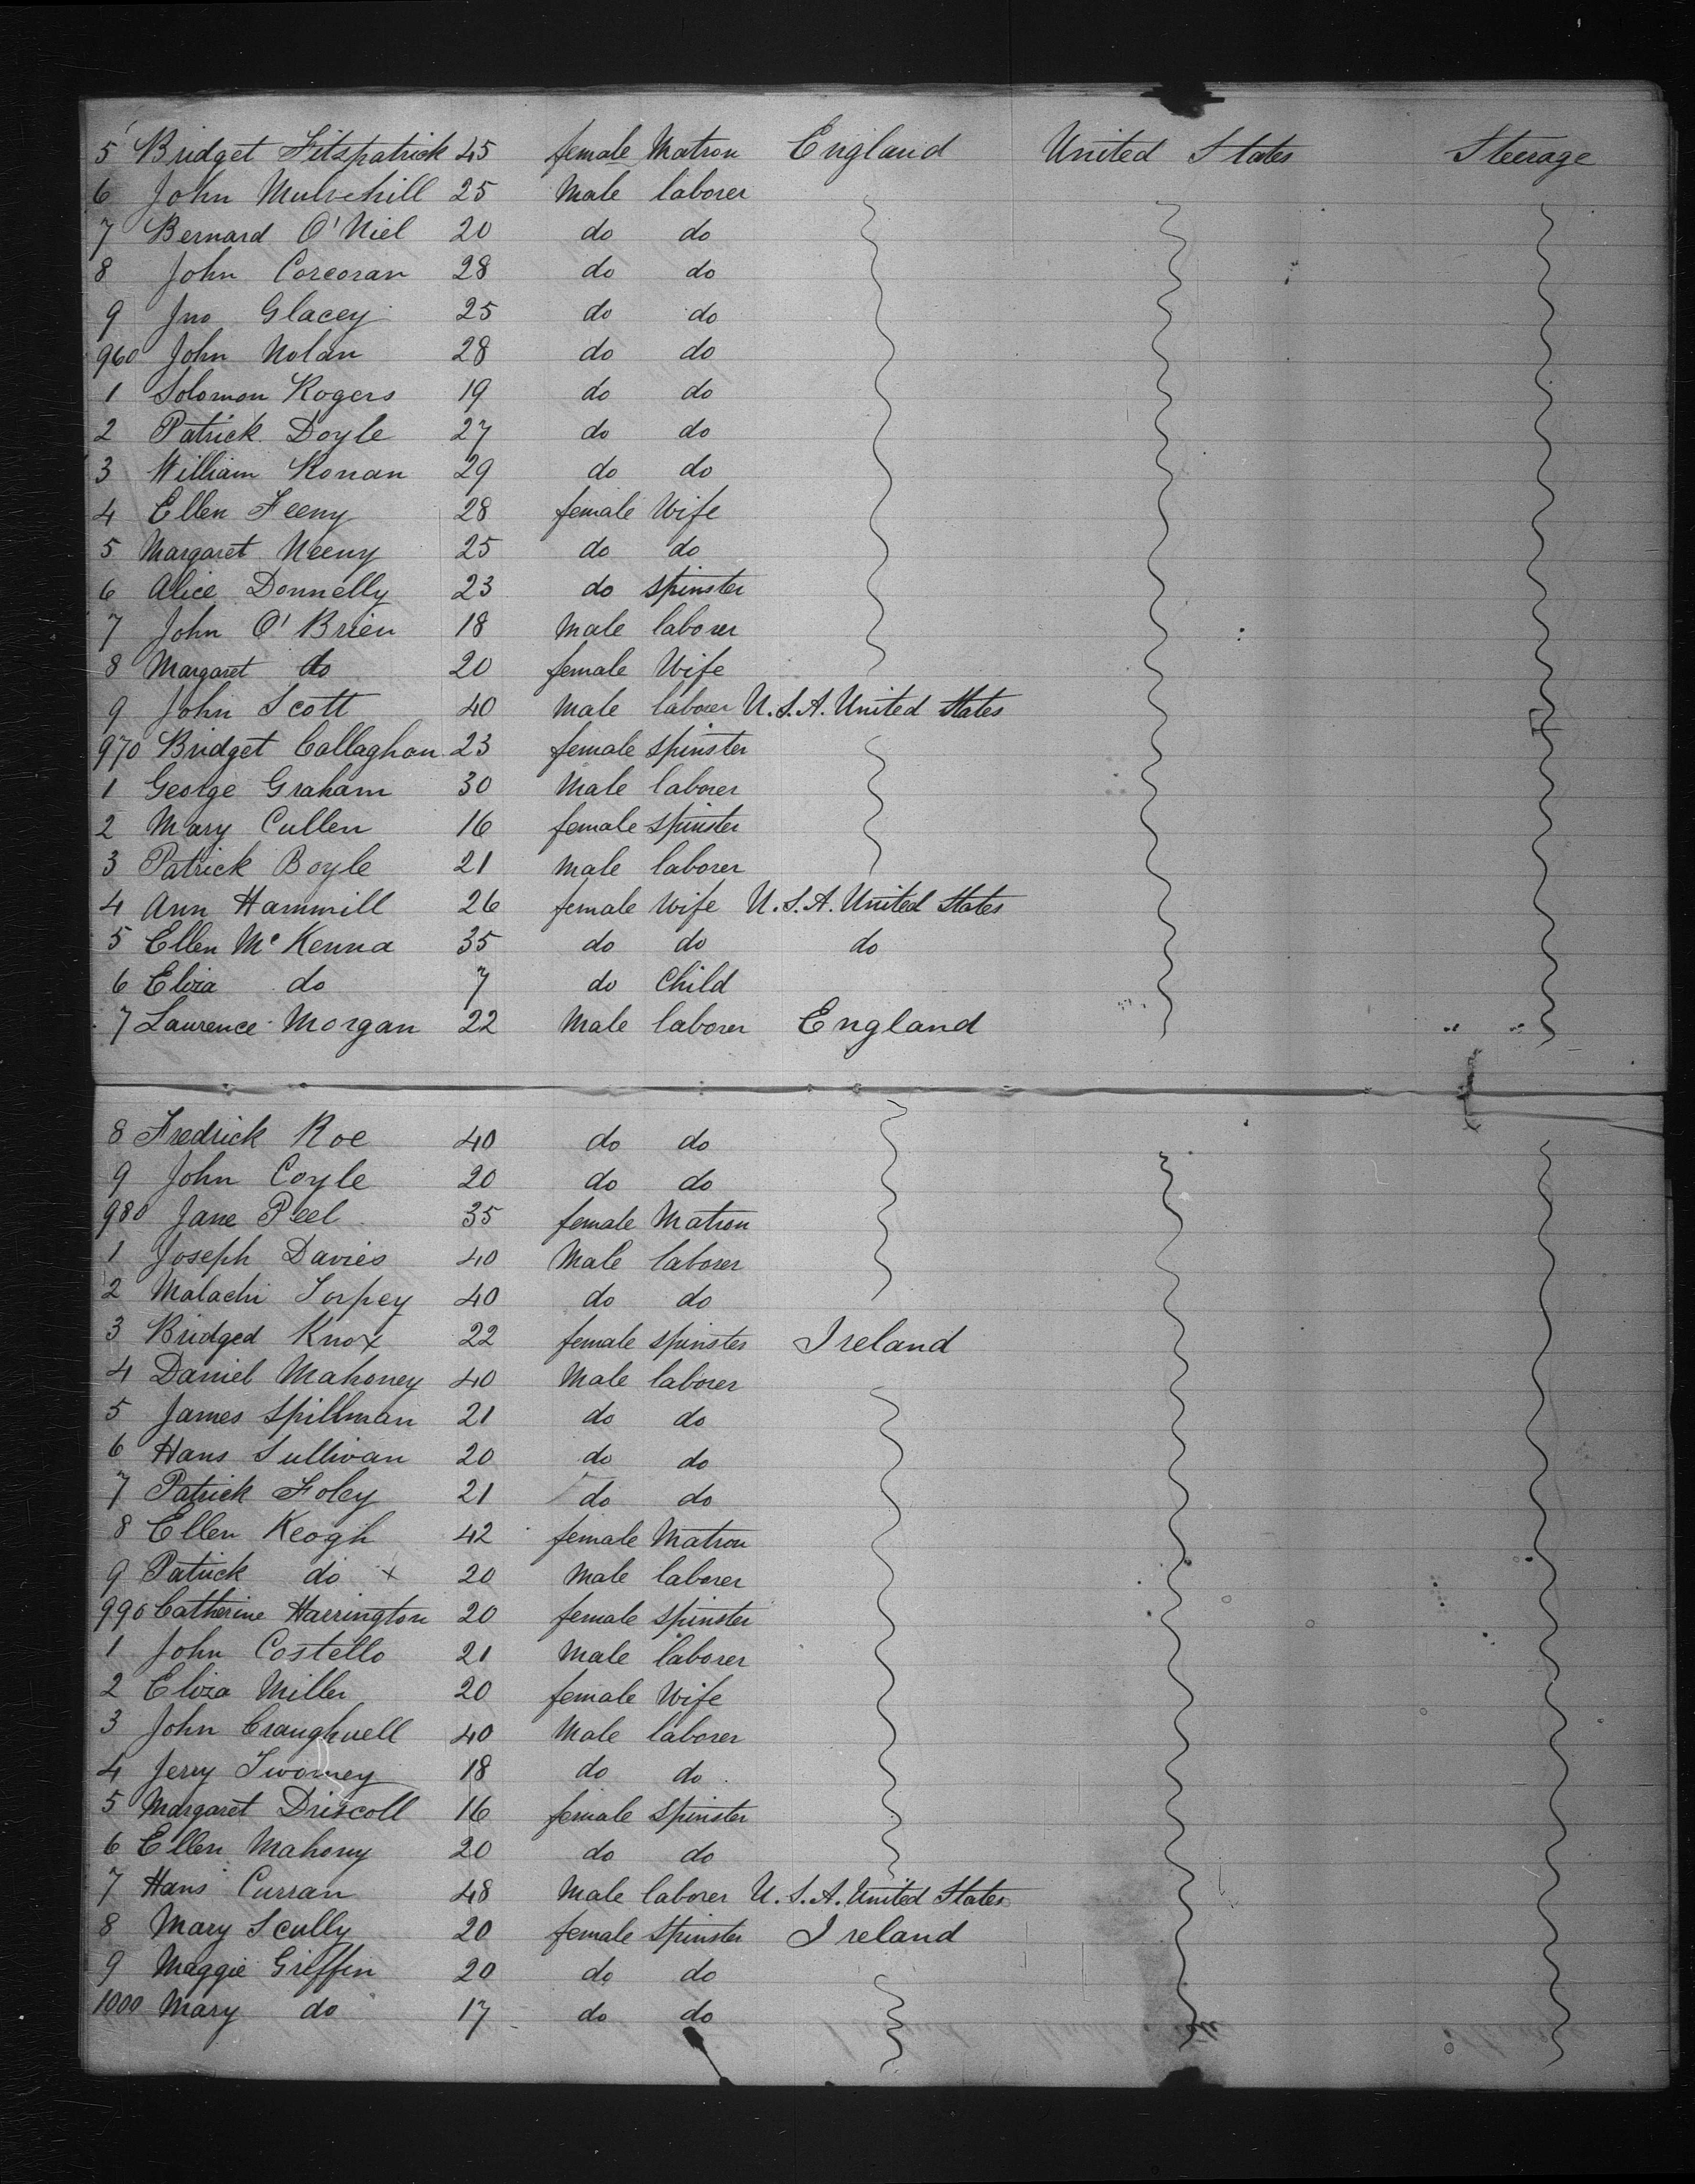 5 Bridget Fitzpatrick 45 female Matron England United States Steerage
6 John Mulvehill 25 Male laborer
7 Bernard O'Niel 20 do do
8 John Corcoran 28 do do
9 Jno Glacey 25 do do
960 John Nolan 28 do do
1 Solomon Rogers 19 do do
2 Patrick Doyle 27 do do
3 William Ronan 29 do do
4 Ellen Feeny 28 female Wife
5 Margaret Neeny 25 do do
6 Alice Donnelly 23 do Spinster
7 John O'Brien 18 Male laborer
8 Margaret do 20 female Wife
9 John Scott 40 Male laborer U.S.A. United States
970 Bridget Callaghan 23 female Spinster
1 George Graham 30 Male laborer
2 Mary Cullen 16 female Spinster
3 Patrick Boyle 21 Male laborer
4 Ann Hammill 26 female Wife U.S.A. United States
5 Ellen McKenna 35 do do do
6 Eliza do 7 do Child
7 Laurence Morgan 22 Male laborer England
8 Fredrick Roe 40 do do
9 John Coyle 20 do do
980 Jane Peel 35 female Matron
1 Joseph Davies 40 Male laborer
2 Malachi Torpey 40 do do
3 Bridged Knox 22 female Spinster Ireland
4 Daniel Mahoney 40 Male laborer
5 James Spillman 21 do do
6 Hans Sullivan 20 do do
7 Patrick Foley 21 do do
8 Ellen Keogh 42 female Matron
9 Patrick do x 20 Male laborer
990 Catherine Harrington 20 female Spinster
1 John Costello 21 Male laborer
2 Eliza Miller 20 female Wife
3 John Craughwell 40 Male laborer
4 Jerry Twomey 18 do do
5 Margaret Driscoll 16 female Spinster
6 Ellen Mahony 20 do do
7 Hans Curran 48 Male laborer U.S.A. United States
8 Mary Scully 20 female Spinster Ireland
9 Maggie Griffin 20 do do
1000 Mary do 17 do do